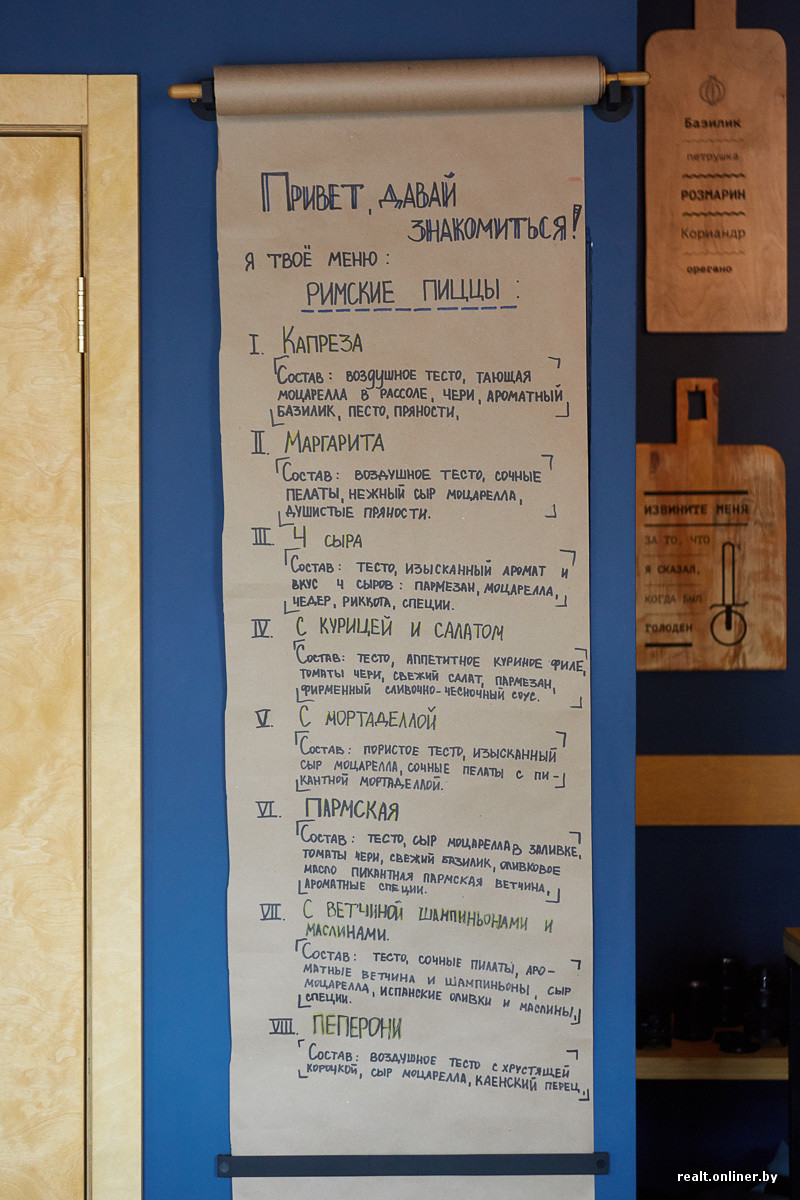 Привет, давай
знакомиться!
Я твоё меню:
Римские пиццы:
I. Капреза
Состав: воздушное тесто, тающая
моцарелла в рассоле, чери, ароматный
базилик, песто, пряности,
II. Маргарита
Состав: воздушное тесто, сочные
пелаты, нежный сыр моцарелла,
душистые пряности.
III. 4 сыра
Состав: тесто, изысканный аромат и
вкус 4 сыров: пармезан, моцарелла,
чедер, риккота, специи.
IV. С курицей и салатом
Состав: тесто, аппетитное куриное филе,
томаты чери, свежий салат, пармезан,
фирменный сливочно-чесночный соус.
V. С мортаделлой
Состав: пористое тесто, изысканный
сыр моцарелла, сочные пелаты с пи-
кантной мортаделлой.
VI. Пармская
Состав: тесто, сыр моцарелла в заливке,
томаты чери, свежий базилик, оливковое
масло пикантная пармская ветчина,
ароматные специи.
VII. С ветчиной шампиньонами и
маслинами.
Состав: тесто, сочные пилаты, аро-
матные ветчина и шампиньоны, сыр
моцарелла, испанские оливки и маслины,
специи.
VIII. Пеперони
Состав: воздушное тесто с хрустящей
корочкой, сыр моцарелла, каенский перец,
Базилик
петрушка
РОЗМАРИН
Кориандр
орегано
ИЗВИНИТЕ МЕНЯ
ЗА ТО, ЧТО
Я СКАЗАЛ,
КОГДА БЫЛ
ГОЛОДЕН
realt.onliner.by